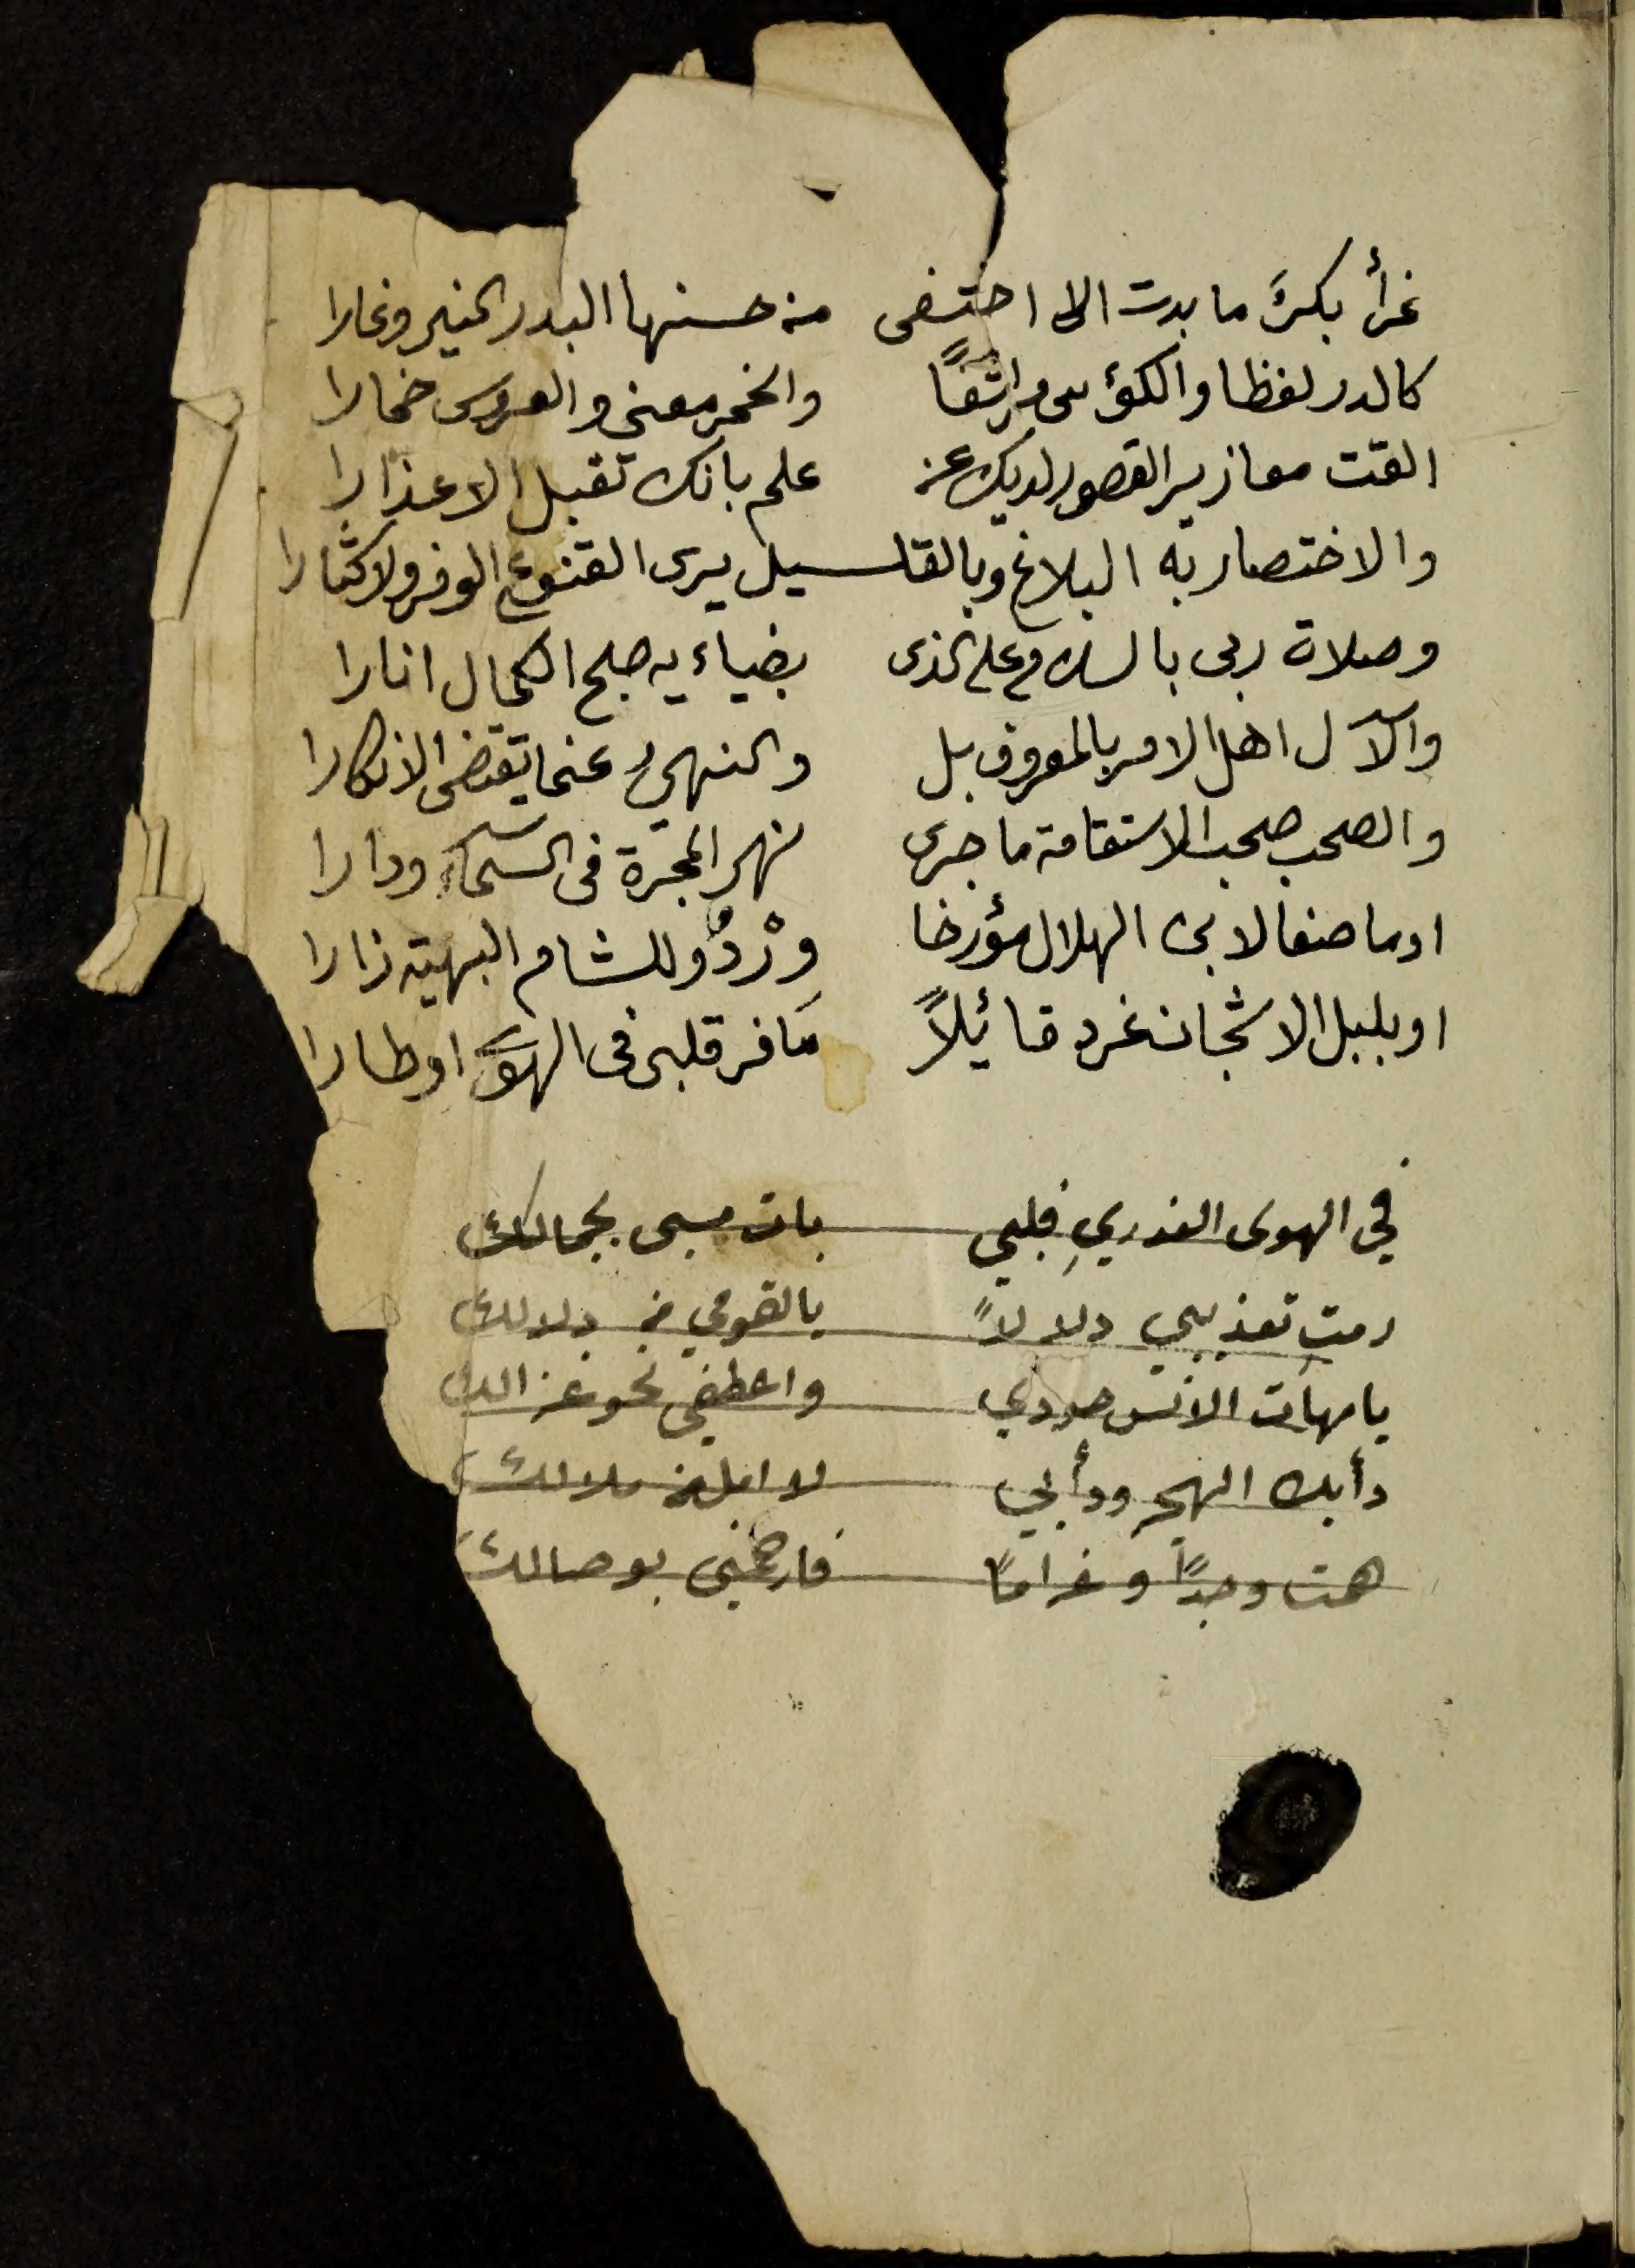 غرأ بكرً ما بدت الا اختفى من حسنها البدر المنير وغارا
كالدر لفظا والكؤس مراشفًا والخمر معنى والعروس خمارا
القت معازير القصور لديك عن علم بانك تقبل الاعذارا
والاختصار به البلاغ وبالقلسيل يرى القنوع الوفر ولاكثارا
وصلاة ربى بالسلام على الذى بضياءيه صلح الكمال انارا
والآل اهل الامر بالمعروف بل والنهي عنما يقتضى الانكارا
والصحب صحب الاستقامة ما جرى نهر المجرة فى السماء ودارا
اوما صفا لابى الهلال مؤرخا وِرْدٌ وللشام البهية زارا
او بلبل الاشجان غرد قائيلاً مَا فر قلبى فى الهوَى اوطارا
في الهوى العذريِ قلبي بات مسبى بجمالك
رمتِ تعذيبي دلالاً يالقومي من دلالك
يا مهات الانس جودي واعطفي نحو غزالك
دأبك الهجر ودأبي لا امل من ملالك
همت وجدًا وغرامًا فارحميني بوصالك